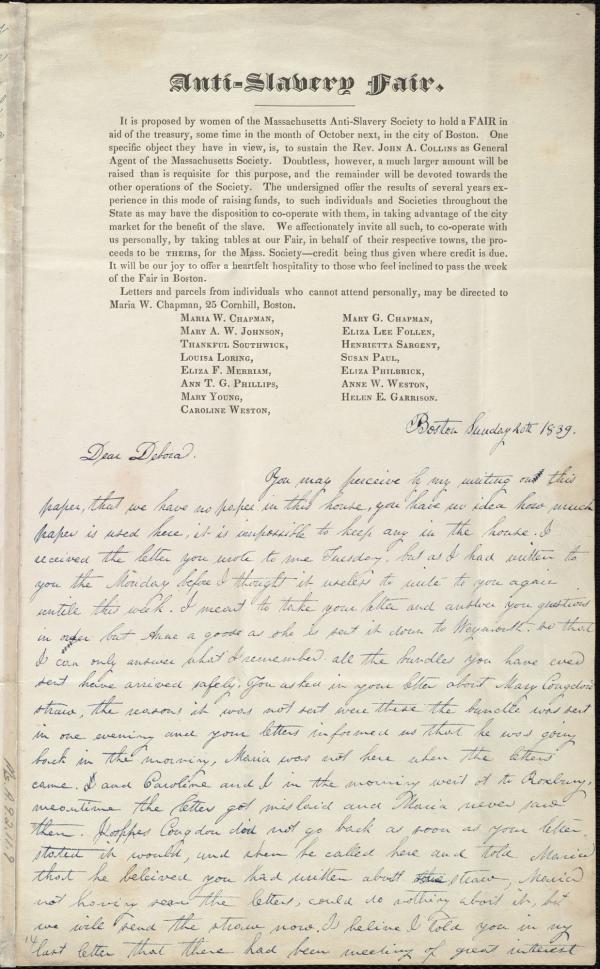 Anti-Slavery Fair.
It is proposed by women of the Massachusetts Anti-Slavery Society to hold a FAIR in
aid of the treasury, some time in the month of October next, in the city of Boston. One
specific object they have in view, is, to sustain the Rev. JOHN A. COLLINS as General
Agent of the Massachusetts Society. Doubtless, however, a much larger amount will be
raised than is requisite for this purpose, and the remainder will be devoted towards the
other operations of the Society. The undersigned offer the results of several years ex-
perience in this mode of raising funds, to such individuals and Societies throughout the
State as may have the disposition to co-operate with them, in taking advantage of the city
market for the benefit of the slave. We affectionately invite all such, to co-operate with
us personally, by taking tables at our Fair, in behalf of their respective towns, the pro-
ceeds to be THEIRS, for the Mass. Society—credit being thus given where credit is due.
It will be our joy to offer a heartfelt hospitality to those who feel inclined to pass the week
of the Fair in Boston.
Letters and parcels from individuals who cannot attend personally, may be directed to
Maria W. Chapman, 25 Cornhill, Boston.
MARIA W. CHAPMAN,
MARY A. W. JOHNSON,
THANKFUL SOUTHWICK,
LOUISA LORING,
ELIZA F. MERRIAM,
ANN T. G. PHILLIPS,
MARY YOUNG,
CAROLINE WESTON,
MARY G. CHAPMAN,
ELIZA LEE FOLLEN,
HENRIETTA SARGENT,
SUSAN PAUL,
ELIZA PHILBRICK,
ANNE W. WESTON,
HELEN E. GARRISON.
Boston Sunday 1839.
Dear Debora.
You may perceive by my writing on this
paper, that we have no paper in this house, you have no idea how much
paper is used here, it is impossible to keep any in the house. I
received the letter you wrote to me Tuesday. but as I had written to
you the Monday before I thought it useless to write to you again
untile this week. I meant to take your letter and answer you questions
in order but Anne a goose as she is sent it down to Weymouth. so that
I can only answer what I remember. all the bundles you have ever
sent have arrived safely. You asked in your letter about Mary Congdons
straw, the reasons it was not sent were these the bundle was sent
in one evening and your letters informed us that he was going
back in the morning, Maria was not here when the letters
came. D and Caroline and I in the morning went ot to Roxbury,
meantime the letter got mislaid and Maria never saw
them. Congdon did not go back as soon as your letter
stated it would, and when he called here and told Maria
that he beleived you had written about straw, Maria
not having seen the letters, could do nothing about it, but
we will send the straw now. I belive I told you in my
last letter that there had been meeting of great interest
Ms.A.9.2.11.9